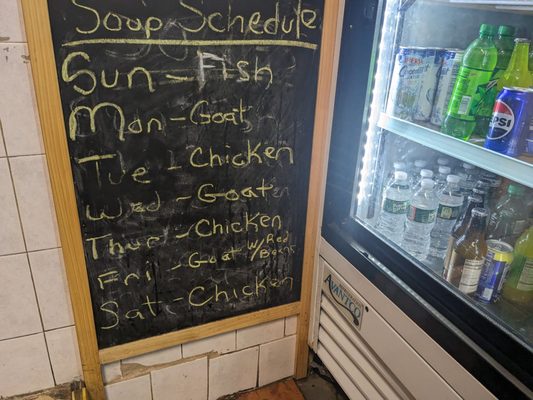 Soup Schedule
Sun - Fish
Mon - Goat
Tue - Chicken
Wed - Goat
Thur - Chicken
Fri - Goat w/ Red Beans
Sat - Chicken
PEPSI
AVANTCO